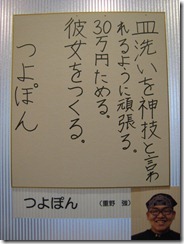 皿洗いを神技と言わ
れるように頑張る。
30万円ためる。
彼女をつくる。
つよぽん
つよぽん
（重野 強）